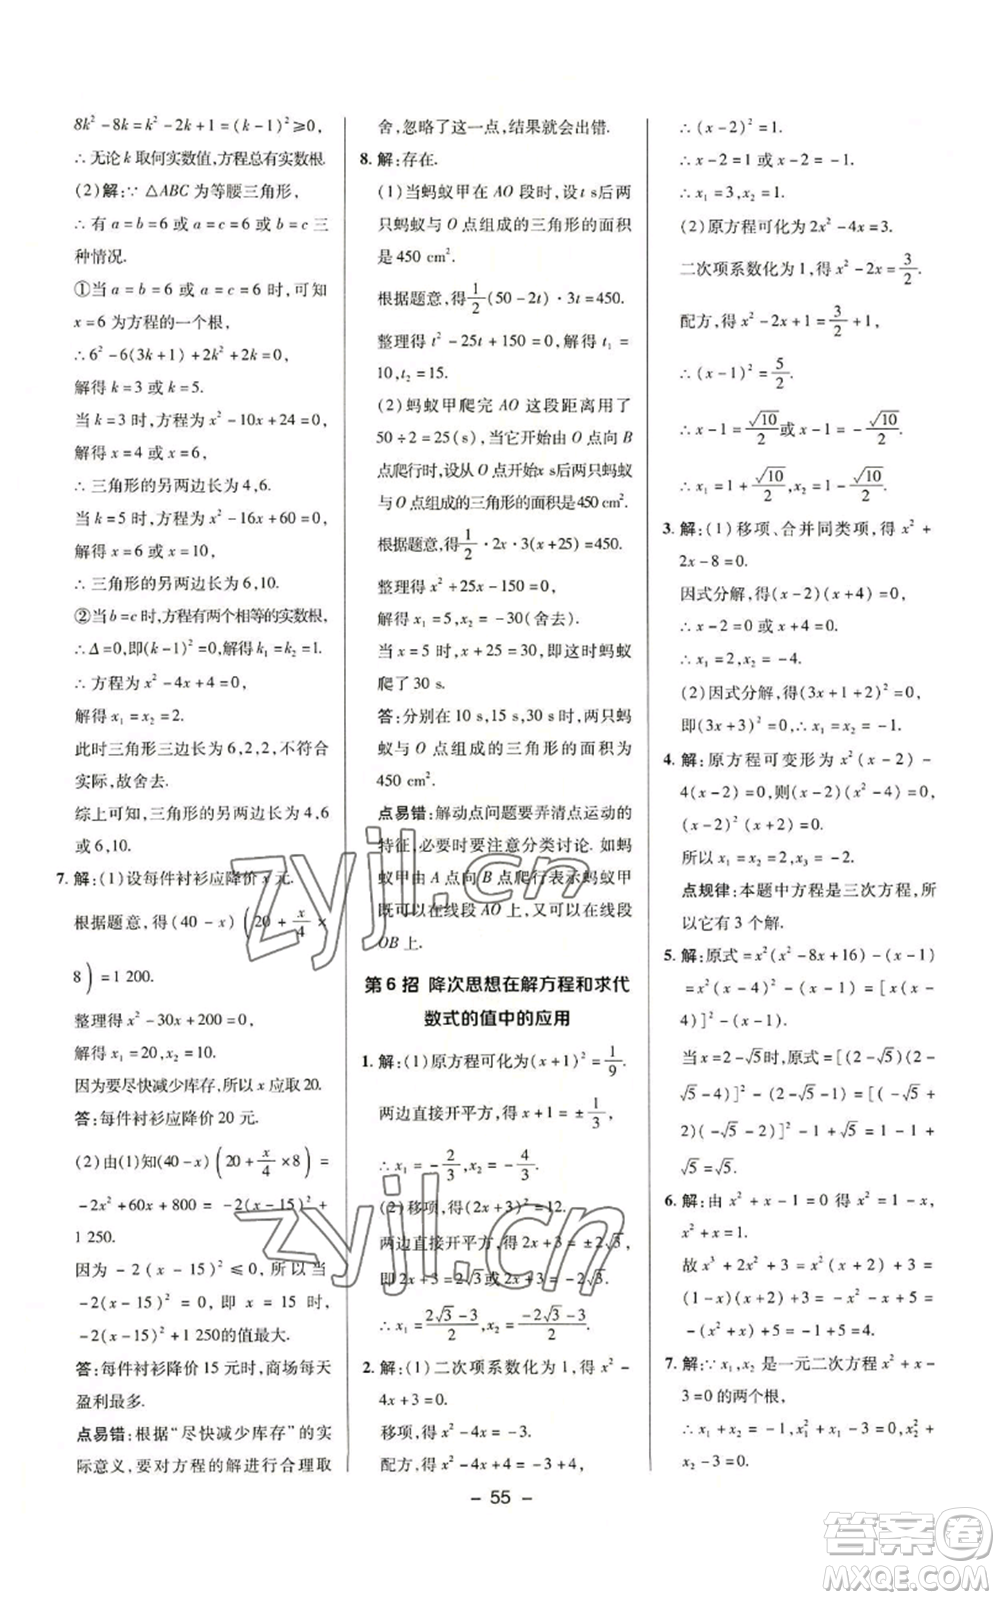 8k²-8k=k²-2k+1=(k-1)²≥0,
∴无论k取何实数值,方程总有实数根.
(2)解:∵△ABC为等腰三角形,
∴有a=b=6或a=c=6或b=c三
种情况.
①当a=b=6或a=c=6时,可知
x=6为方程的一个根,
∴6²-6(3k+1)+2k²+2k=0,
解得k=3或k=5.
当k=3时,方程为x²-10x+24=0,
解得x=4或x=6,
∴三角形的另两边长为4,6.
当k=5时,方程为x²-16x+60=0,
解得x=6或x=10,
∴三角形的另两边长为6,10.
②当b=c时,方程有两个相等的实数根,
∴Δ=0,即(k-1)²=0,解得k₁=k₂=1.
∴方程为x²-4x+4=0,
解得x₁=x₂=2.
此时三角形三边长为6,2,2,不符合
实际,故舍去.
综上可知,三角形的另两边长为4,6
或6,10.
7.解:(1)设每件衬衫应降价x元.
根据题意,得(40-x)(20+x/4×
8)=1 200.
整理得x²-30x+200=0,
解得x₁=20,x₂=10.
因为要尽快减少库存,所以x应取20.
答:每件衬衫应降价20元.
(2)由(1)知(40-x)(20+x/4×8)=
-2x²+60x+800=-2(x-15)²+
1 250.
因为-2(x-15)²≤0,所以当
-2(x-15)²=0,即x=15时,
-2(x-15)²+1 250的值最大.
答:每件衬衫降价15元时,商场每天
盈利最多.
点易错:根据“尽快减少库存”的实
际意义,要对方程的解进行合理取
舍,忽略了这一点,结果就会出错.
8.解:存在.
(1)当蚂蚁甲在AO段时,设t s后两
只蚂蚁与O点组成的三角形的面积
是450 cm².
根据题意,得1/2(50-2t)·3t=450.
整理得t²-25t+150=0,解得t₁=
10,t₂=15.
(2)蚂蚁甲爬完AO这段距离用了
50÷2=25(s),当它开始由O点向B
点爬行时,设从O点开始x s后两只蚂
蚁与O点组成的三角形的面积是450 cm².
根据题意,得1/2·2x·3(x+25)=450.
整理得x²+25x-150=0,
解得x₁=5,x₂=-30(舍去).
当x=5时,x+25=30,所以蚂蚁
爬了30 s.
答:分别在10 s,15 s,30 s时,两只蚂
蚁与O点组成的三角形的面积为
450 cm².
点易错:解动点问题要弄清点运动的
特征,必要时要注意分类讨论.如蚂
蚁甲由A点向B点爬行表示蚂蚁甲
既可以在线段AO上,又可以在线段
OB上.
第6招 降次思想在解方程和求代
数式的值中的应用
1.解:(1)原方程可化为(x+1)²=1/9,
两边直接开平方,得x+1=±1/3,
∴x₁=-2/3,x₂=-4/3.
(2)移项,得(2x+3)²=12.
两边直接开平方,得2x+3=±2√3.
即2x+3=2√3或2x+3=-2√3.
∴x₁=(2√3-3)/2,x₂=(-2√3-3)/2.
2.解:(1)二次项系数化为1,得x²-
4x+3=0.
移项,得x²-4x=-3.
配方,得x²-4x+4=-3+4,
∴(x-2)²=1.
∴x-2=1或x-2=-1.
∴x₁=3,x₂=1.
(2)原方程可化为2x²-4x=3.
二次项系数化为1,得x²-2x=3/2.
配方,得x²-2x+1=3/2+1,
∴(x-1)²=5/2.
∴x-1=√10/2或x-1=-√10/2.
∴x₁=1+√10/2,x₂=1-√10/2.
3.解:(1)移项、合并同类项,得x²+
2x-8=0.
因式分解,得(x-2)(x+4)=0,
∴x-2=0或x+4=0,
∴x₁=2,x₂=-4.
(2)因式分解,得(3x+1+2)²=0,
即(3x+3)²=0,∴x₁=x₂=-1.
4.解:原方程可变形为x²(x-2)-
4(x-2)=0,则(x-2)(x²-4)=0,
(x-2)²(x+2)=0.
所以x₁=x₂=2,x₃=-2.
点规律:本题中方程是三次方程,所
以它有3个解.
5.解:原式=x²(x²-8x+16)-(x-1)
=x²(x-4)²-(x-1)=[x(x-
4)]²-(x-1).
当x=2-√5时,原式=[(2-√5)(2-
√5-4)]²-(2-√5-1)=[(-√5+
2)(-√5-2)]²-1+√5=1-1+
√5=√5.
6.解:由x²+x-1=0得x²=1-x,
x²+x=1.
故x³+2x²+3=x·x²+2x²+3=
(1-x)x+2(1-x)+3=
x-x²+2-2x+3=-x²-x+5=
-(x²+x)+5=-1+5=4.
7.解:∵x₁,x₂是一元二次方程x²+x-
3=0的两个根,
∴x₁+x₂=-1,x₁²+x₁-3=0,x₂²+
x₂-3=0.
- 55 -
zyjl.cn
zyjl.cn
答案圈
MXQE.COM